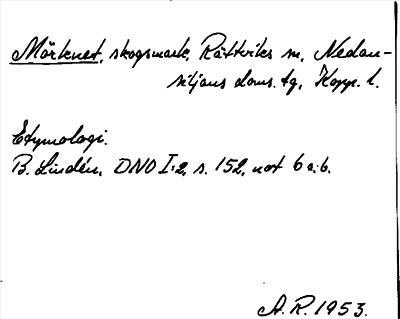 Mörknet, skogsmark, Rättviks sn, Nedan-
siljans doms. tg, Kopp. l.
Etymologi.
B. Lindén, DNO I:2, s. 152, not 6 o. 6.
A. R. 1953.